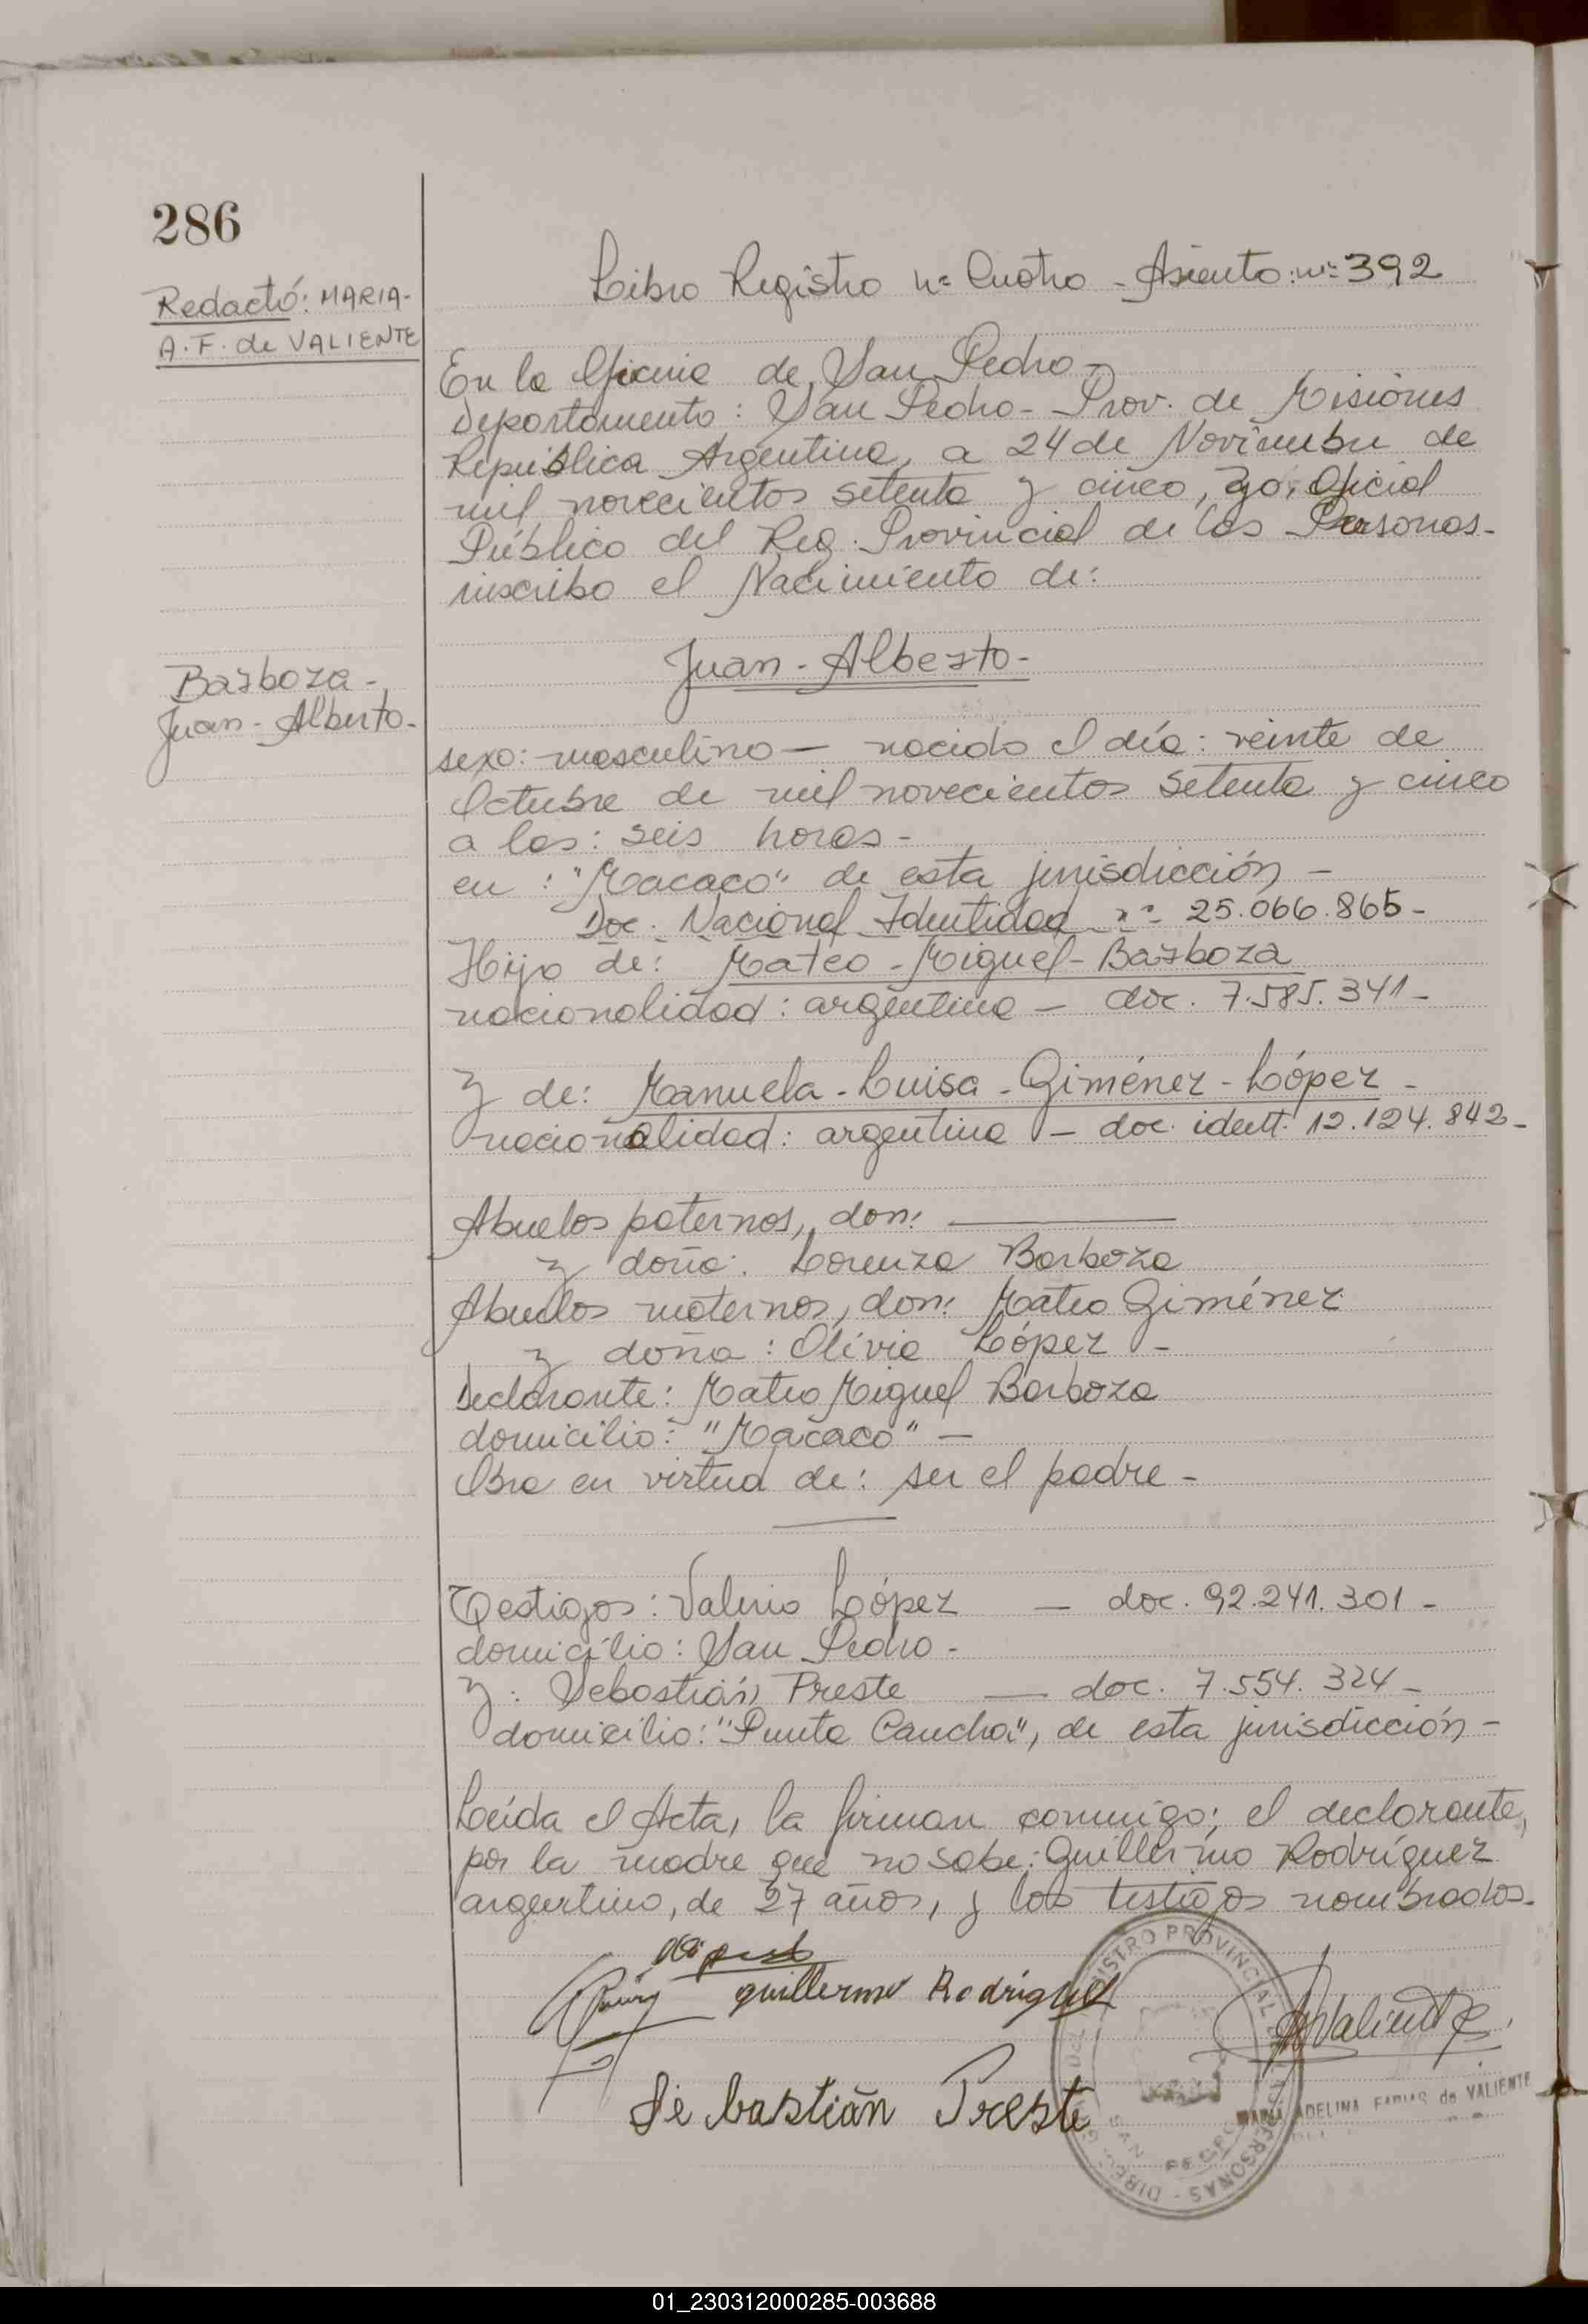 286
Redactó: MARIA-
A. F. de VALIENTE
Libro Registro nº Cuatro - Asiento: nº 392
En la Oficina de San Pedro -
Departamento: San Pedro - Prov. de Misiones
República Argentina, a 24 de Noviembre de
mil novecientos setenta y cinco, yo, Oficial
Público del Reg. Provincial de las Personas -
inscribo el Nacimiento de:
Juan - Alberto -
Barboza -
Juan - Alberto -
sexo: masculino — nacido el día: veinte de
Octubre de mil novecientos setenta y cinco
a las: seis horas -
en: "Macaco" de esta jurisdicción -
Doc. Nacional Identidad nº 25.066.865 -
Hijo de: Mateo - Miguel - Barboza
nacionalidad: argentina — doc. 7.585.341 -
y de: Manuela - Luisa - Giménez - López -
nacionalidad: argentina — doc. ident. 12.124.842 -
Abuelos paternos, don: ———
y doña: Lorenza Barboza
Abuelos maternos, don: Mateo Giménez
y doña: Olivia López -
Declarante: Mateo Miguel Barboza
domicilio: "Macaco" —
Obra en virtud de: ser el padre -
Testigos: Valerio López — doc. 92.241.301 -
domicilio: San Pedro -
y: Sebastián Preste — doc. 7.554.324 -
domicilio: "Punta Cancha", de esta jurisdicción -
Leída el Acta, la firman conmigo; el declarante,
por la madre que no sabe: Guillermo Rodríguez
argentino, de 27 años, y los testigos nombrados -
guillermo Rodriguez
Sebastián Preste
Valiente
REGISTRO PROVINCIAL DE LAS PERSONAS
SAN PEDRO
MARIA ADELINA FARIAS de VALIENTE
01_230312000285-003688